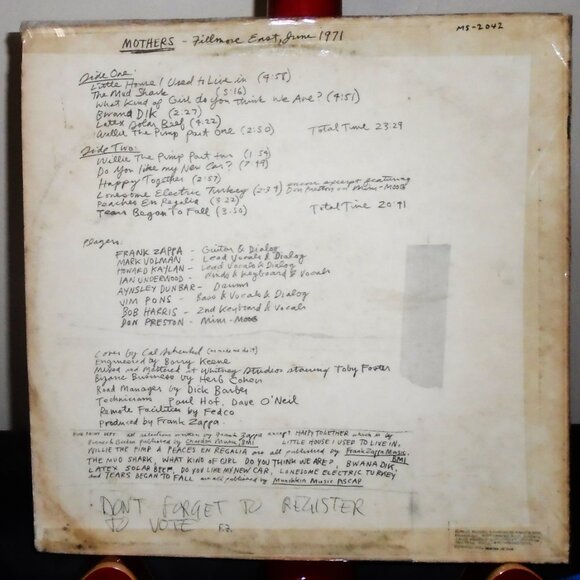 MS-2042
MOTHERS - Fillmore East, June 1971
Side One:
Little House I Used to Live in (4:58)
The Mud Shark (5:16)
What Kind of Girl do you Think We Are? (4:51)
Bwana Dik (2:27)
Latex Solar Beef (4:22)
Willie The Pimp Part One (2:50) Total Time 23:29
Side Two:
Willie The Pimp Part two (1:54)
Do You like my New Car? (7:49)
Happy Together (2:57)
Lonesome Electric Turkey (2:34) encore excerpt featuring Don Preston on Mini-Moog
Peaches En Regalia (3:22)
Tears Began To Fall (3:50) Total Time 20:41
Players:
FRANK ZAPPA - Guitar & Dialog
MARK VOLMAN - Lead Vocals & Dialog
HOWARD KAYLAN - Lead Vocals & Dialog
IAN UNDERWOOD - Winds & Keyboard & Vocals
AYNSLEY DUNBAR - Drums
JIM PONS - Bass & Vocals & Dialog
BOB HARRIS - 2nd Keyboard & Vocals
DON PRESTON - Mini-Moog
Cover by Cal Schenkel
Engineered by Barry Keene
Mixed and Mastered at Whitney Studios starring Toby Foster
Bizarre Business by Herb Cohen
Road Manager by Dick Barber
Technicians Paul Hof, Dave O'Neil
Remote Facilities by Fedco
Produced by Frank Zappa.
FINE PRINT DEPT. All selections written by Frank Zappa except HAPPY TOGETHER which is by
published by Chardon Music, BMI LITTLE HOUSE I USED TO LIVE IN,
WILLIE THE PIMP & PEACES EN REGALIA are all published by Frank Zappa Music, BMI
THE MUD SHARK, WHAT KIND OF GIRL DO YOU THINK WE ARE?, BWANA DIK,
LATEX SOLAR BEEF, DO YOU LIKE MY NEW CAR, LONESOME ELECTRIC TURKEY
and TEARS BEGAN TO FALL are all published by Munchkin Music ASCAP
DON'T FORGET TO REGISTER
TO VOTE FZ